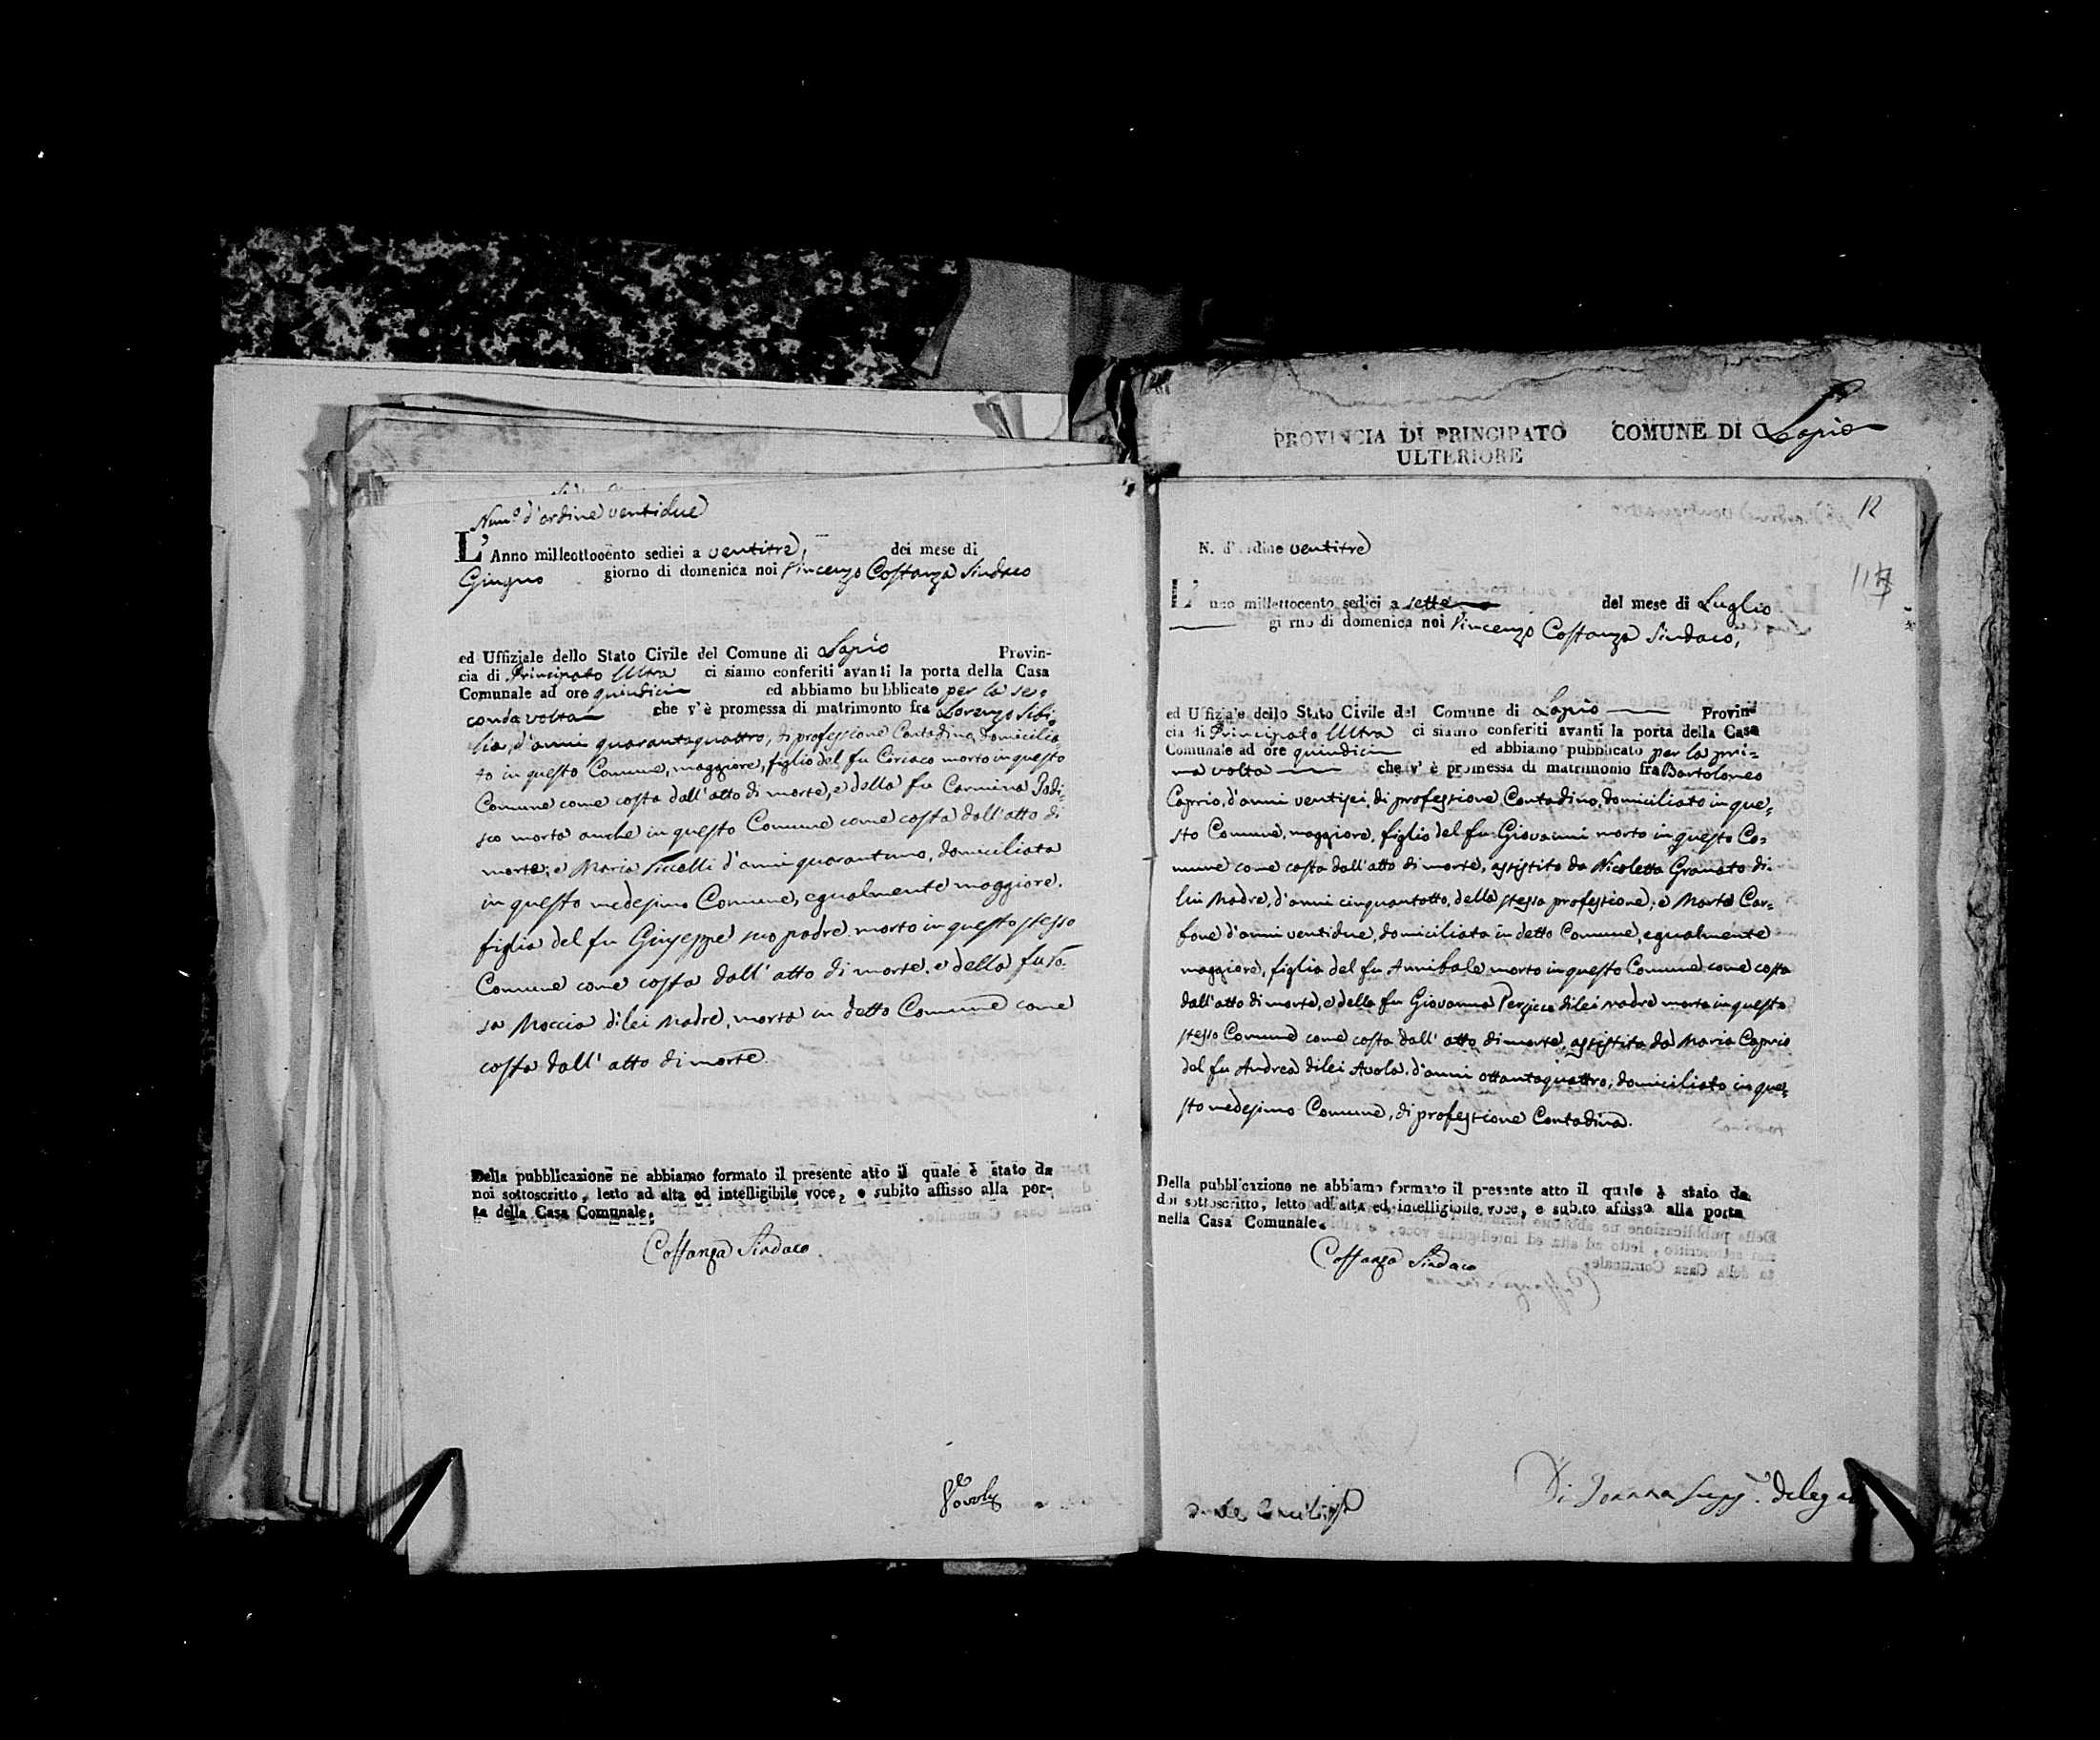 Num.o d'ordine ventidue
L'Anno milleottocento sedici a ventitre, del mese di
Giugno giorno di domenica noi Vincenzo Costanza Sindaco
ed Uffiziale dello Stato Civile del Comune di Lapio Provin-
cia di Principato Ultra ci siamo conferiti avanti la porta della Casa
Comunale ad ore quindici ed abbiamo bubblicato per la se=
conda volta che v'è promessa di matrimonto fra Lorenzo Sibi=
lia, d'anni quarantaquattro, di professione Contadino, domicilia=
to in questo Comune, maggiore, figlio del fu Ciriaco morto in questo
Comune come costa dall'atto di morte, e della fu Carmina Jadi=
sco morta anche in questo Comune come costa dall'atto di
morte; e Maria d'anni quarantuno, domiciliata
in questo medesimo Comune, egualmente maggiore,
figlia del fu Giuseppe suo padre morto in questo stesso
Comune come costa dall'atto di morte, e della fu Ro=
sa Moccia di lei Madre, morta in detto Comune come
costa dall'atto di morte.
Della pubblicazione ne abbiamo formato il presente atto il quale è stato da
noi sottoscritto, letto ad alta ed intelligibile voce, e subito affisso alla por-
ta della Casa Comunale.
Costanza Sindaco
PROVINCIA DI PRINCIPATO COMUNE DI Lapio
ULTERIORE
12
N. d'ordine ventitre
L' nno millettocento sedici a sette del mese di Luglio
gi rno di domenica noi Vincenzo Costanza Sindaco,
ed Uffiziale dello Stato Civile del Comune di Lapio Provin-
cia di Principato Ultra ci siamo conferiti avanti la porta della Casa
Comunale ad ore quindici ed abbiamo pubblicato per la pri=
ma volta che v'è promessa di matrimonio fra Bartolomeo
Caprio, d'anni ventisei, di professione Contadino, domiciliato in que=
sto Comune, maggiore, figlio del fu Giovanni morto in questo Co=
mune come costa dall'atto di morte, assistito da Nicoletta Granato di
lui Madre, d'anni cinquantotto, della stessa professione; e Marta Car=
bone d'anni ventidue, domiciliata in detto Comune, egualmente
maggiore, figlia del fu Annibale morto in questo Comune come costa
dall'atto di morte, e della fu Giovanna Persico di lei madre morta in questo
stesso Comune come costa dall'atto di morte, assistita da Maria Caprio
del fu Andrea di lei Avola, d'anni ottantaquattro, domiciliata in que=
sto medesimo Comune, di professione Contadina.
Della pubblicazione ne abbiamo formato il presente atto il quale è stato da
doi sottoscritto, letto ad alta ed intelligibile voce, e subito affisso alla porta
nella Casa Comunale.
Costanza Sindaco